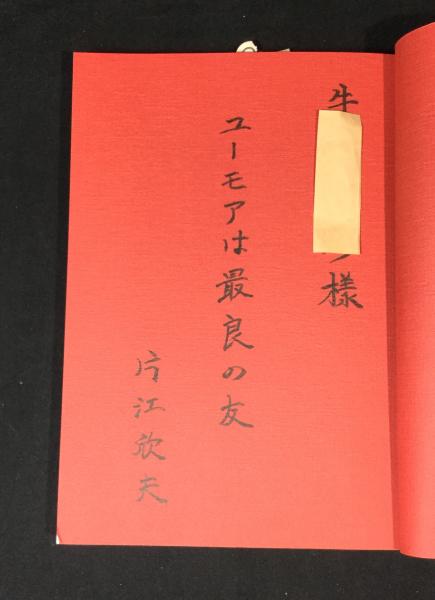 牛 様
ユーモアは最良の友
片江欣夫